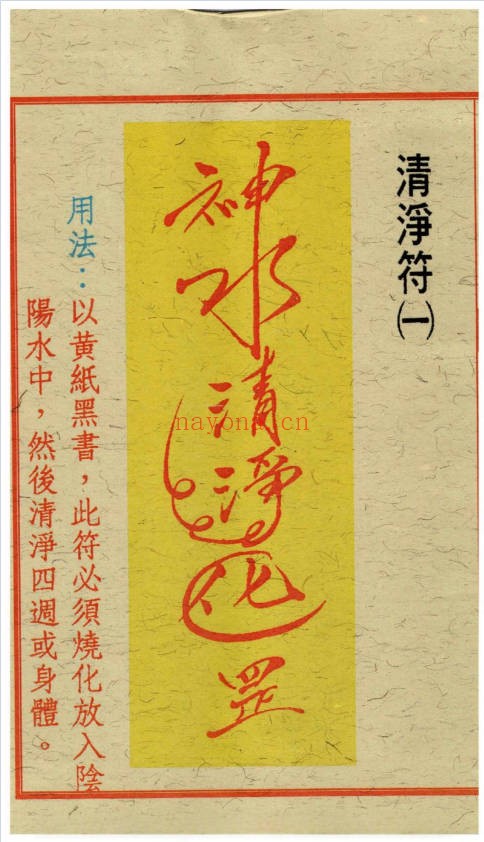 清淨符㈠
神水清淨化罡
用法：以黄紙黑書，此符必須燒化放入陰
陽水中，然後清淨四週或身體。
nayona.cn